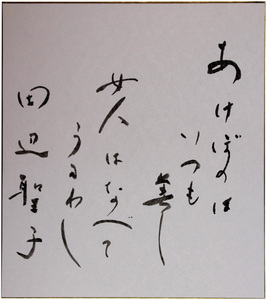 あけぼのは
いつも
善し
女人はなべて
うるわし
田辺聖子